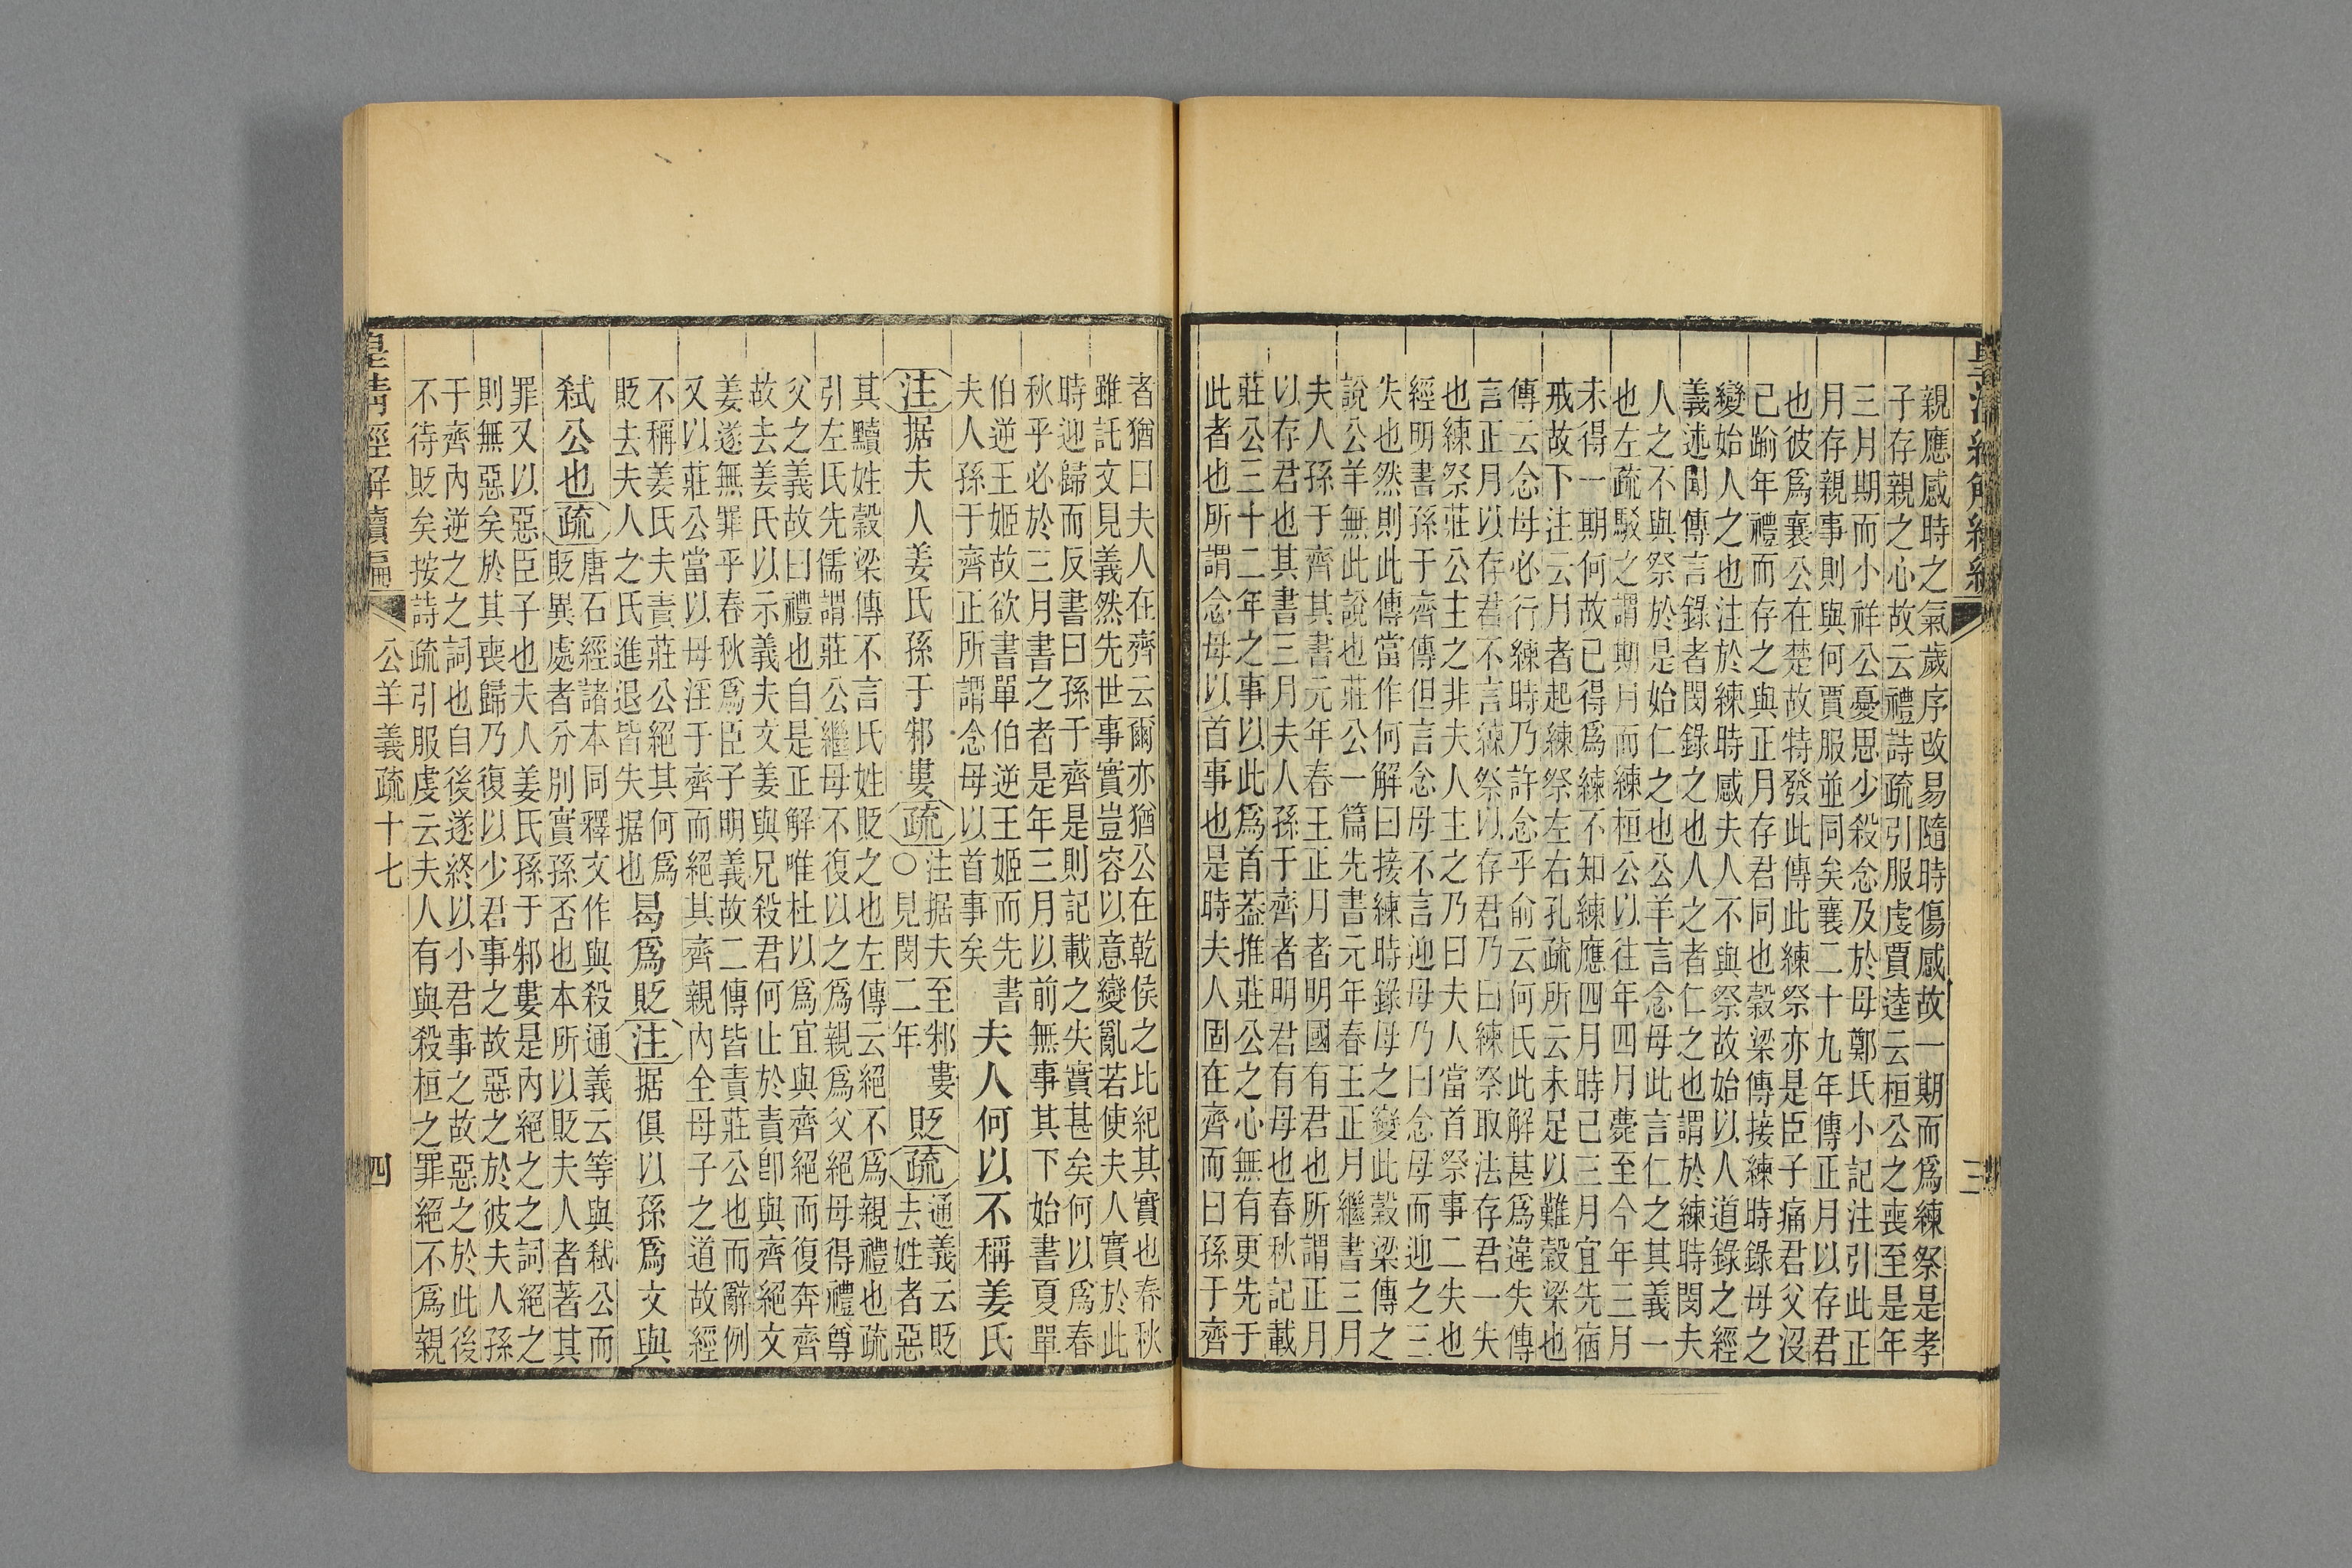 親應感時之氣歲序改易隨時傷感故一期而爲練祭是孝
子存親之心故云禮詩疏引服虔賈逵云桓公之喪至是年
三月期而小祥公憂思少殺念及於母鄭氏小記注引此正
月存親事則與何賈服並同矣襄二十九年傳正月以存君
也彼爲襄公在楚故特發此傳此練祭亦是臣子痛君父沒
已踰年禮而存之與正月存君同也穀梁傳接練時錄母之
變始人之也注於練時感夫人不與祭故始以人道錄之經
義述聞傳言錄者閔錄之也人之者仁之也謂於練時閔夫
人之不與祭於是始仁之也公羊言念母此言仁之其義一
也左疏駁之謂期月而練桓公以往年四月薨至今年三月
未得一期何故已得爲練不知練應四月時已三月宜先宿
戒故下注云月者起練祭左右孔疏所云未足以難穀梁也
傳云念母必行練時乃許念乎俞云何氏此解甚爲違失傳
言正月以存君不言練祭以存君乃曰練祭取法存君一失
也練祭莊公主之非夫人主之乃曰夫人當首祭事二失也
經明書孫于齊傳但言念母不言迎母乃曰念母而迎之三
失也然則此傳當作何解曰接練時錄母之變此穀梁傳之
說公羊無此說也莊公一篇先書元年春王正月繼書三月
夫人孫于齊其書元年春王正月者明國有君也所謂正月
以存君也其書三月夫人孫于齊者明君有母也春秋記載
莊公三十二年之事以此爲首葢推莊公之心無有更先于
此者也所謂念母以首事也是時夫人固在齊而曰孫于齊
三
者猶曰夫人在齊云爾亦猶公在乾侯之比紀其實也春秋
雖託文見義然先世事實豈容以意變亂若使夫人實於此
時迎歸而反書曰孫于齊是則記載之失實甚矣何以爲春
秋乎必於三月書之者是年三月以前無事其下始書夏單
伯逆王姬故欲書單伯逆王姬而先書
夫人孫于齊正所謂念母以首事矣
夫人何以不稱姜氏
注据夫人姜氏孫于邾婁疏
注据夫至邾婁
○見閔二年
貶疏
通義云貶
去姓者惡
其黷姓穀梁傳不言氏姓貶之也左傳云絕不爲親禮也疏
引左氏先儒謂莊公繼母不復以之爲親爲父絕母得禮尊
父之義故曰禮也自是正解唯杜以爲宜與齊絕而復奔齊
故去姜氏以示義夫文姜與兄殺君何止於責卽與齊絕文
姜遂無罪乎春秋爲臣子明義故二傳皆責莊公也而辭例
又以莊公當以母淫于齊而絕其齊親內全母子之道故經
不稱姜氏夫責莊公絕其何爲
貶去夫人之氏進退皆失据也
曷爲貶注据俱以孫爲文與
弒公也疏
唐石經諸本同釋文作與殺通義云等與弒公而
貶異處者分別實孫否也本所以貶夫人者著其
罪又以惡臣子也夫人姜氏孫于邾婁是內絕之之詞絕之
則無惡矣於其喪歸乃復以少君事之故惡之於彼夫人孫
于齊內逆之之詞也自後遂終以小君事之故惡之於此後
不待貶矣按詩疏引服虔云夫人有與殺桓之罪絕不爲親
皇淸經解續編
公羊義疏十七
四